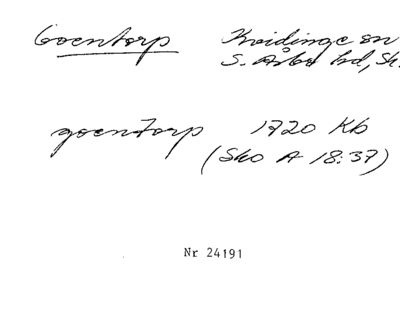 Goentorp Kvidinge sn
S. Åsbo hd, Sk.
goentorp 1720 Kb
(Sko A 18:37)
Nr 24191